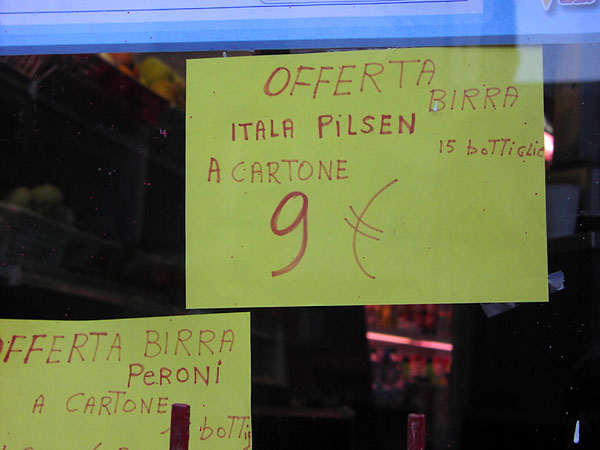 OFFERTA
BIRRA
ITALA PILSEN
15 bOTTIGLIE
A CARTONE
9 €
OFFERTA BIRRA
PERONI
A CARTONE